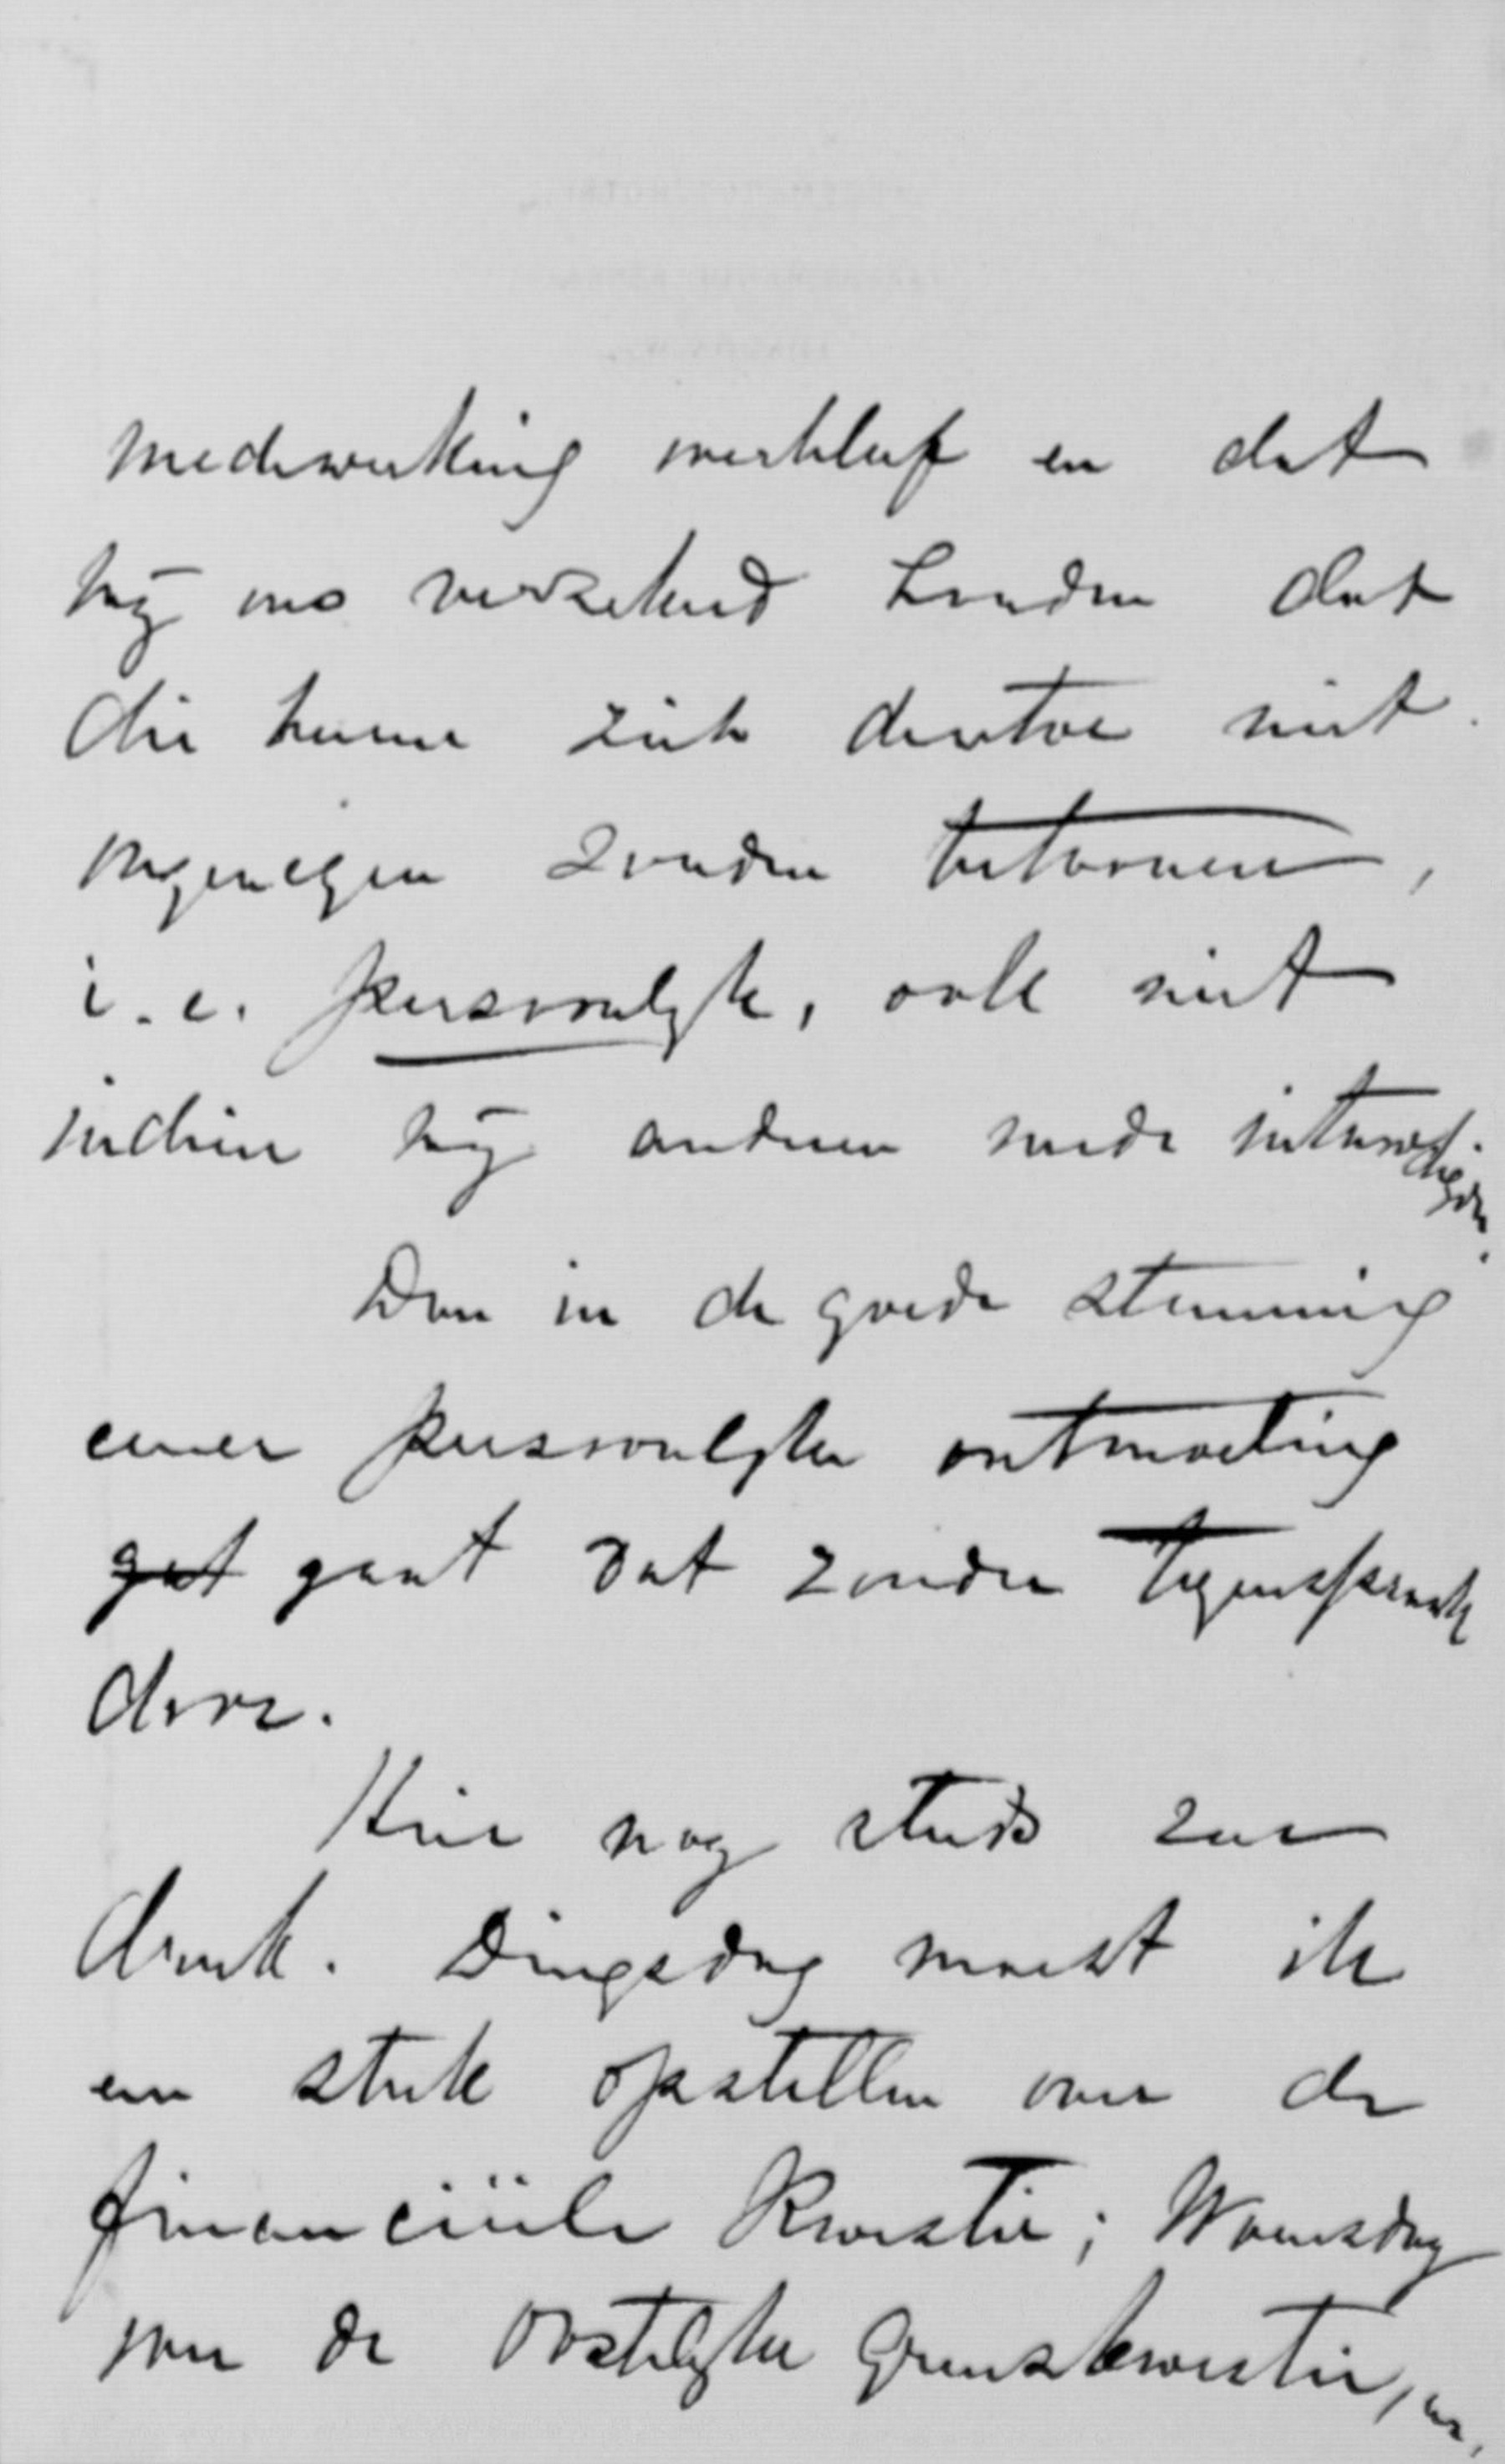 medewerking overbleef en dat
hij ons verzekerd houden dat
die heeren zich daartoe niet
ongenegen zouden betoonen,
i.e. persoonlyk, ook niet
indien hij anderen mede uitnoodigde.
Dan in de goede stemming
eener persoonlyke ontmoeting
gat gaat dat zonder tegenspraak
door.
Hier nog steeds zeer
druk. Dingsdag moest ik
een stuk opstellen over de
financiëele Kwestie; Woensdag
over de Oostelyke Grenskwestie,